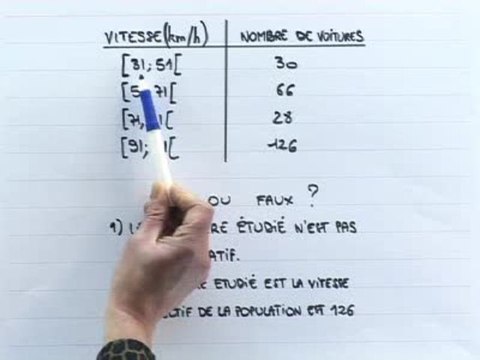 VITESSE (km/h) NOMBRE DE VOITURES
[31; 51[ 30
[5 71[ 66
[71; 1[ 28
[91; 1[ 126
OU FAUX ?
1) RE ÉTUDIÉ N'EST PAS
ATIF.
RE ETUDIÉ EST LA VITESSE
CTIF DE LA POPULATION EST 126